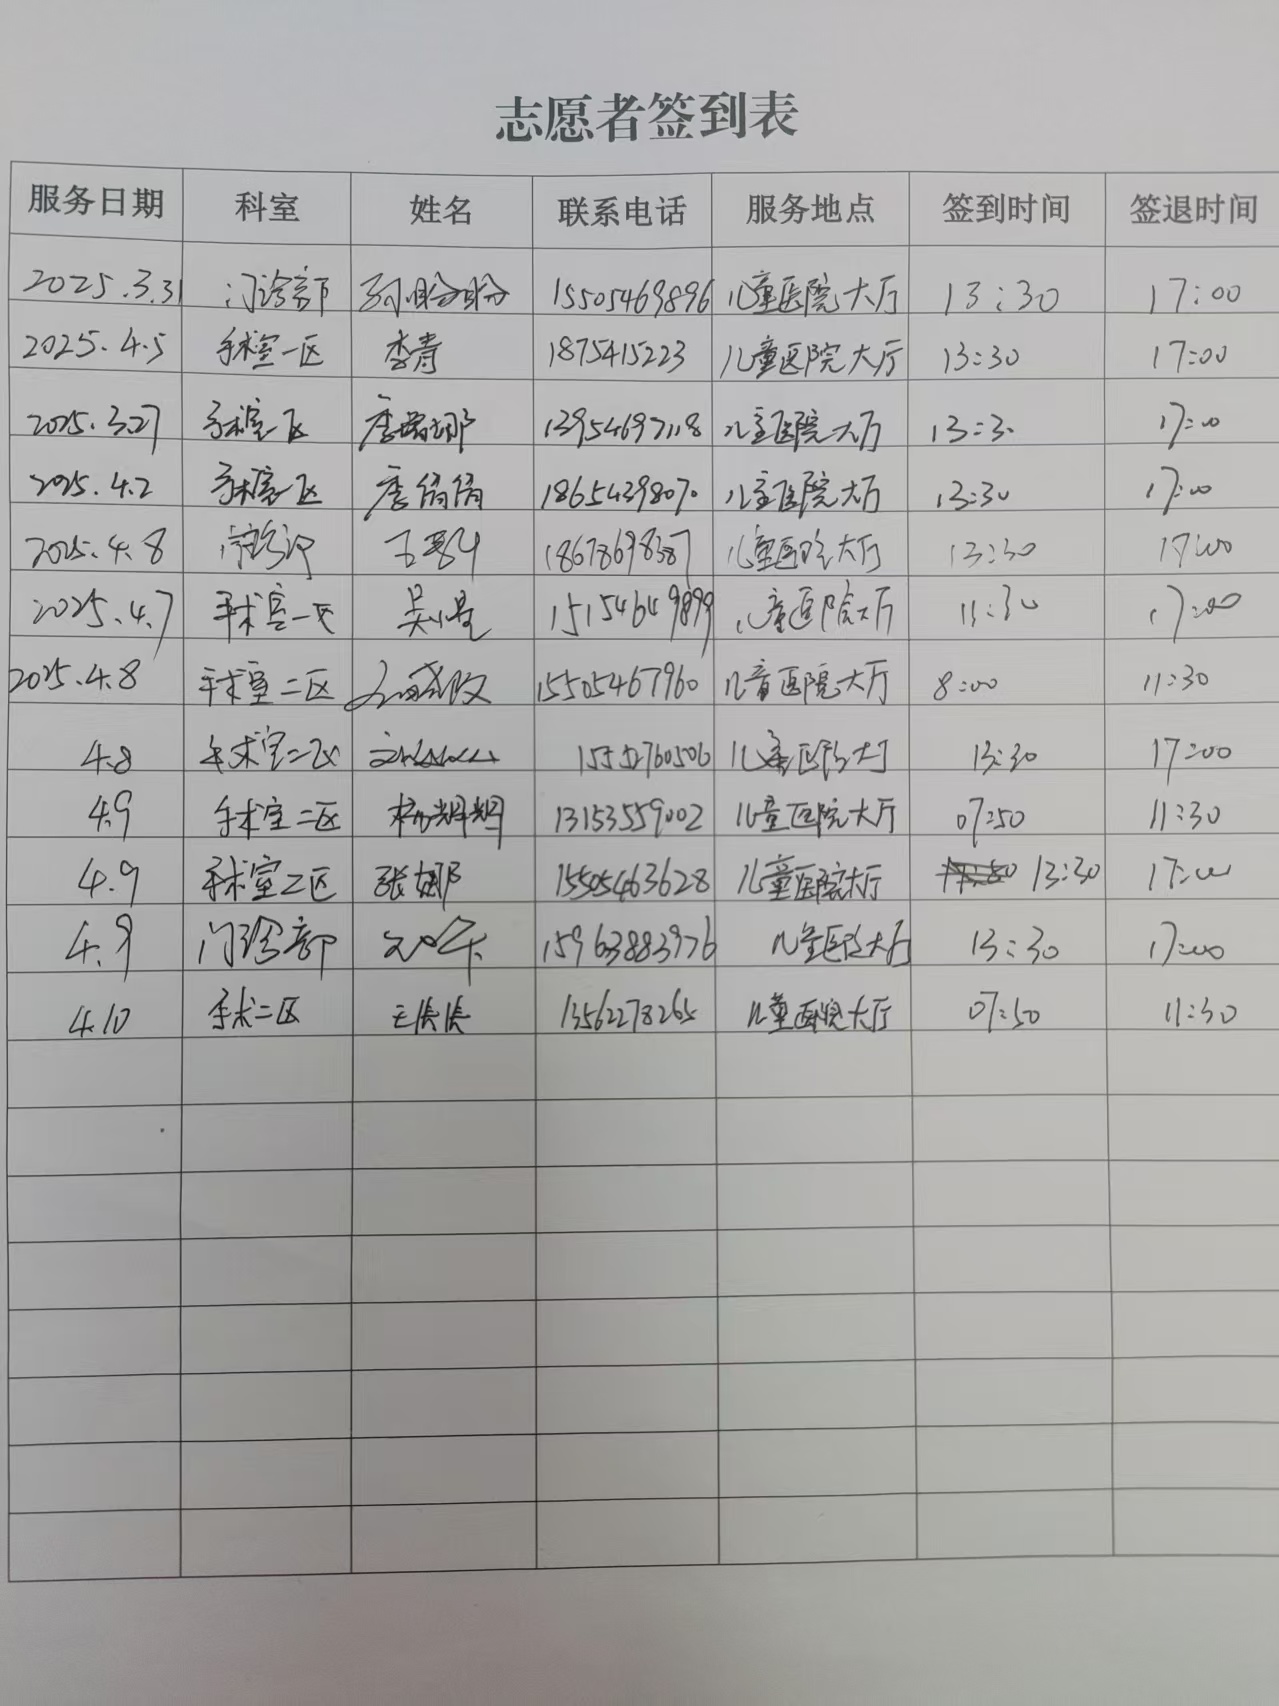 志愿者签到表
服务日期 科室 姓名 联系电话 服务地点 签到时间 签退时间
2025.3.31 门诊部 孙盼盼 15505469896 儿童医院大厅 13:30 17:00
2025.4.5 手术室一区 李青 1875415223 儿童医院大厅 13:30 17:00
2025.3.27 手术室一区 13954697118 儿童医院大厅 13:30 17:00
2025.4.2 手术室一区 李倩倩 18654398070 儿童医院大厅 13:30 17:00
2025.4.8 18678698387 儿童医院大厅 13:30 17:00
2025.4.7 手术室一区 15154649899 儿童医院大厅 17:00
2025.4.8 手术室二区 15505467960 儿童医院大厅 8:00 11:30
4.8 手术室二区 儿童医院大厅 13:30 17:00
4.9 手术室二区 13153559002 儿童医院大厅 07:50 11:30
4.9 手术室二区 张娜 15505463628 儿童医院大厅 13:30 17:00
4.9 门诊部 15963883976 儿童医院大厅 13:30 17:00
4.10 手术二区 13562278265 儿童医院大厅 07:50 11:30